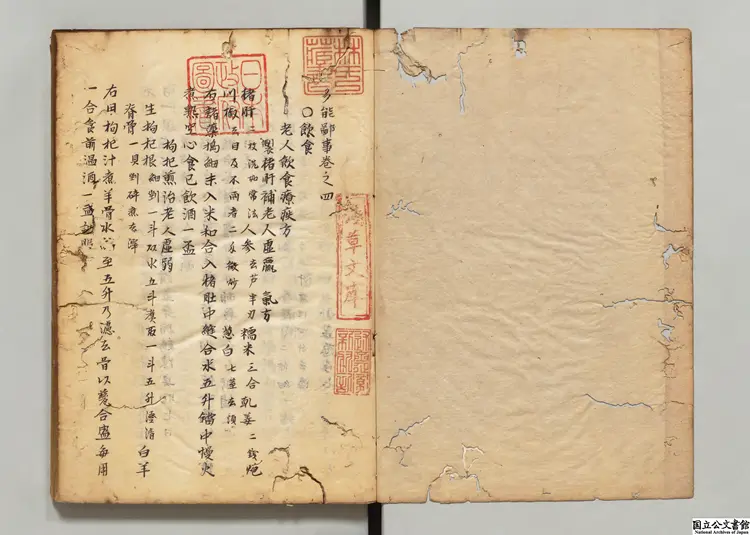 多能鄙事卷之四
〇飲食
老人飲食療疾方
製猪肚補老人虛羸 氣方
猪肚 洗如常法 人參 去芦半刃 糯米 三合 乾姜 二錢炮
川椒 去目及不開者二 微炒 葱白 七莖去須
右諸藥搗細末入米和合入猪肚中縫合水五升鐺中慢火
煮熟空心食已飲酒一盃
枸杞煎治老人虛弱
生枸杞根 細剉一斗以水五斗煮取一斗五升澄清 白羊
脊骨 一具剉碎
右用枸杞汁煮羊骨水 至五升乃濾去骨以甆合盛每用
一合食前溫酒一盞
草文庫
国立公文書館
National Archives of Japan